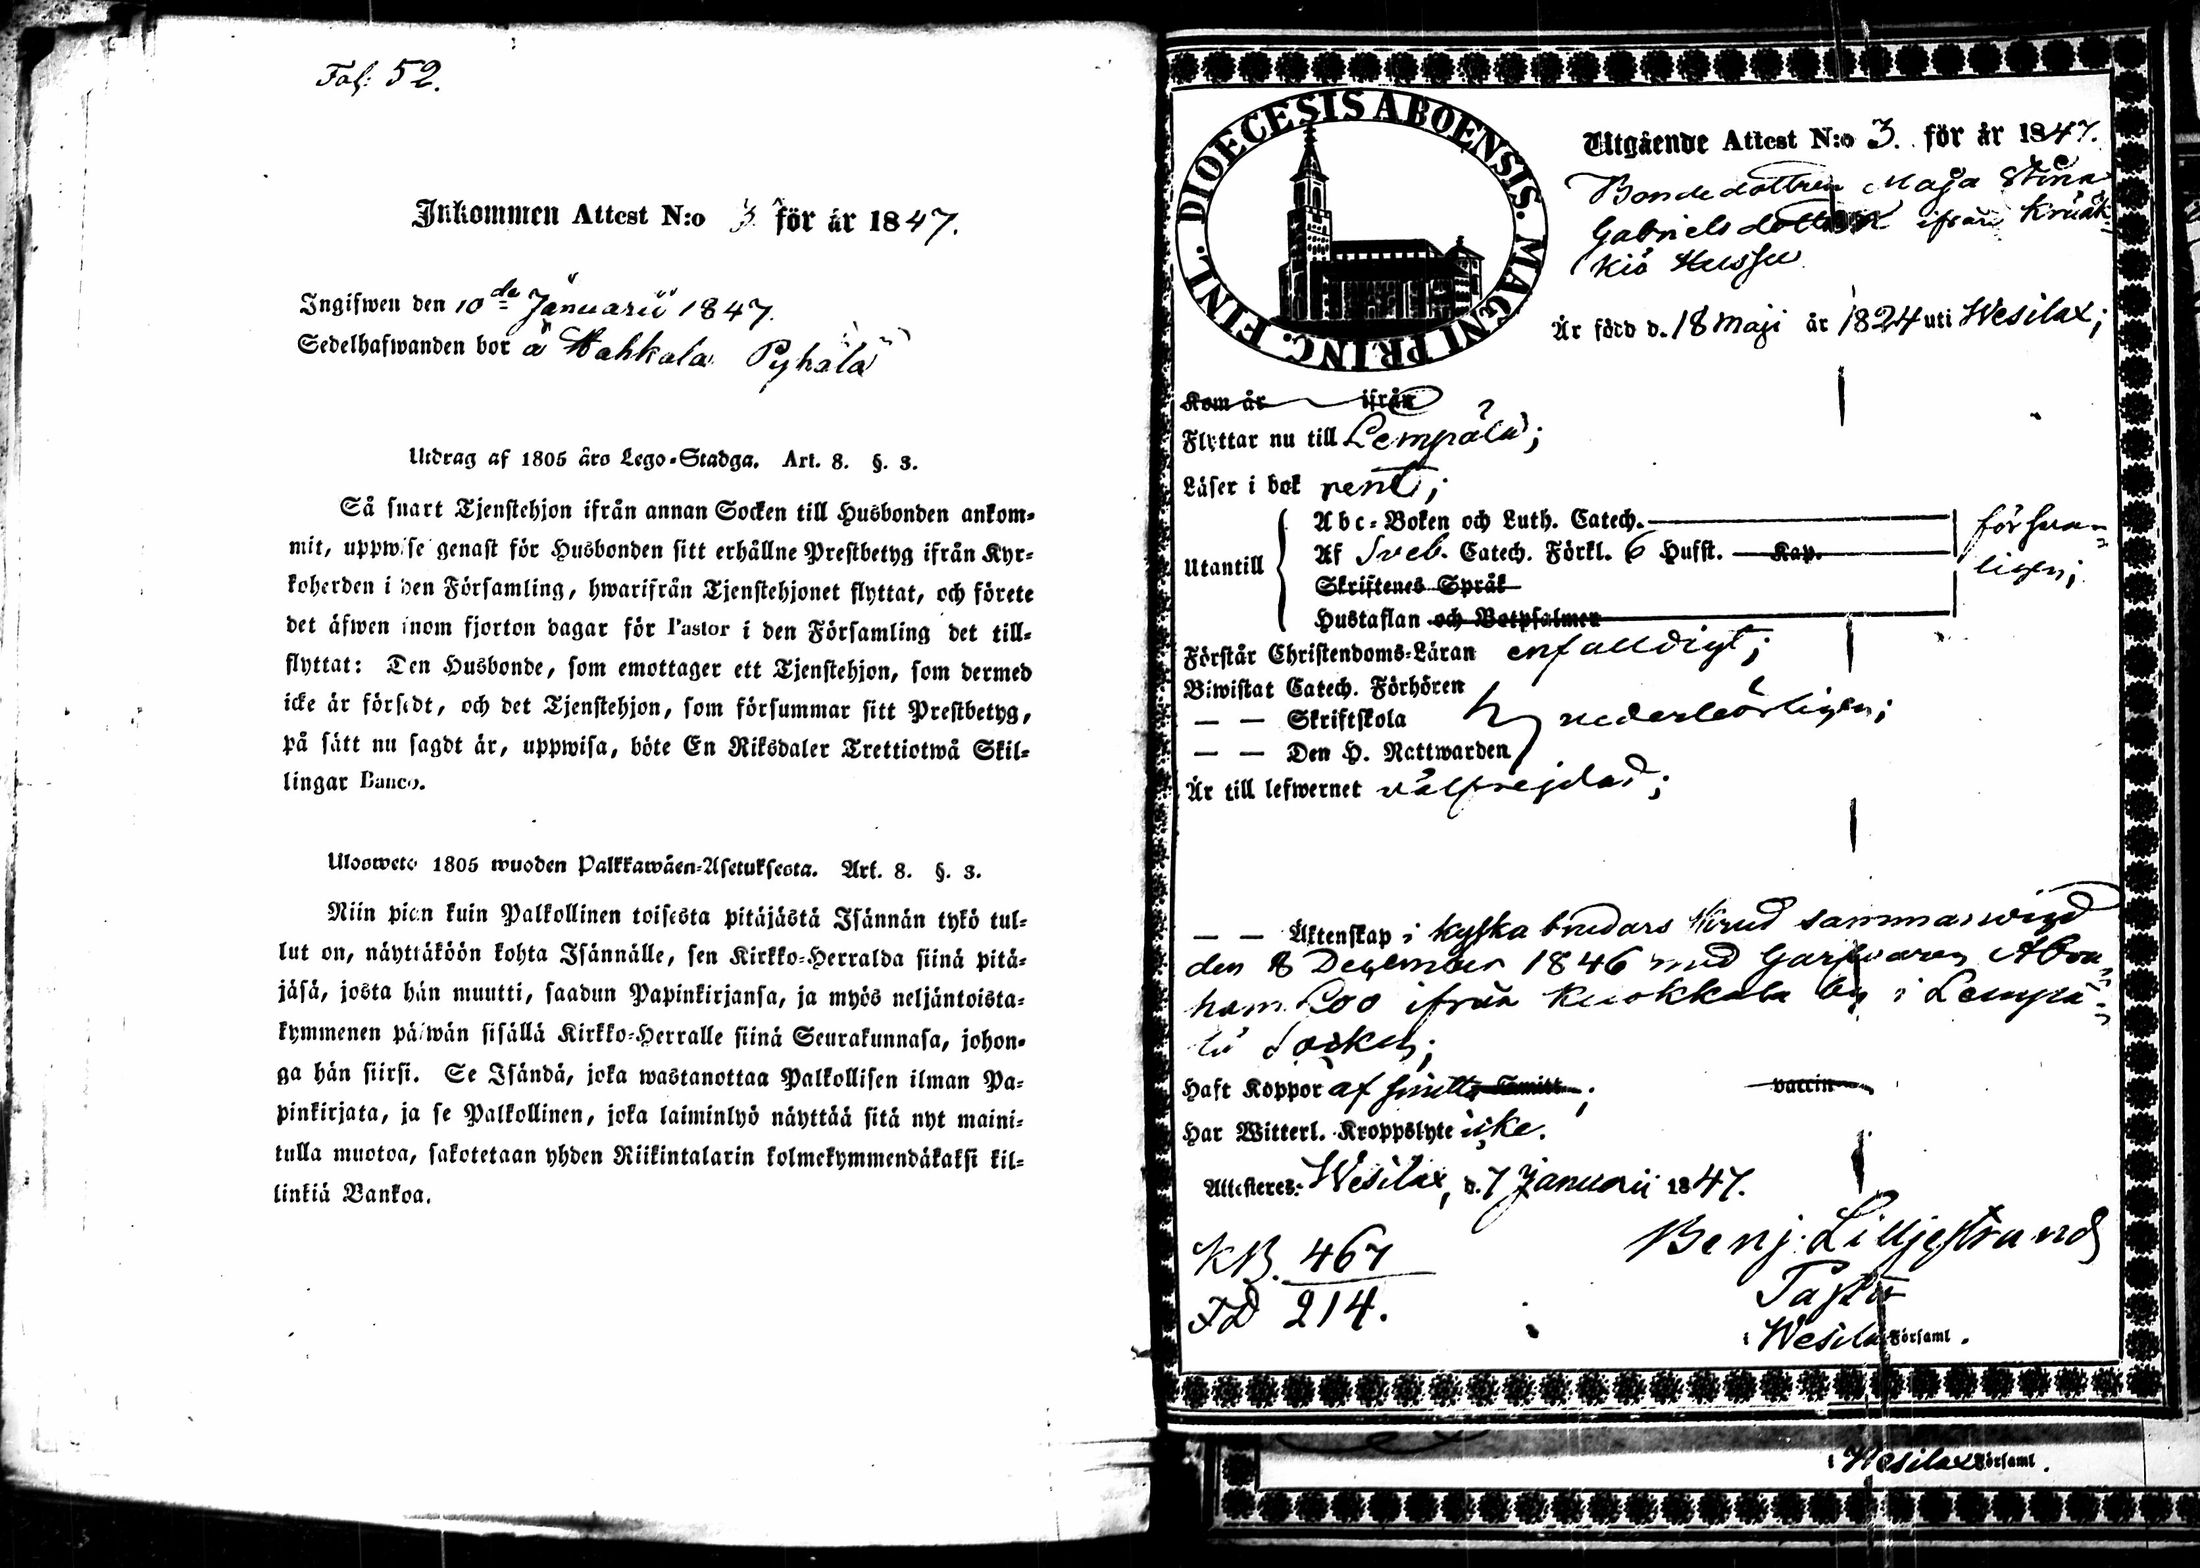 Fol. 52.
Inkommen Attest N:o 3 för år 1847.
Ingifwen den 10de Januarii 1847.
Sedelhafwanden bor å Hahkala Pyhälä
Utdrag af 1805 års Lego-Stadga. Art. 8. §. 3.
Så snart Tjenstehjon ifrån annan Socken till Husbonden ankom-
mit, uppwise genast för Husbonden sitt erhållne Prestbetyg ifrån Kyr-
koherden i den Församling, hwarifrån Tjenstehjonet flyttat, och förete
det äfwen inom fjorton dagar för Pastor i den Församling det till-
flyttat: Den Husbonde, som emottager ett Tjenstehjon, som dermed
icke är försedt, och det Tjenstehjon, som försummar sitt Prestbetyg,
på sätt nu sagdt är, uppwisa, böte En Riksdaler Trettiotwå Skil-
lingar Banco.
Ulosweto 1805 wuoden Palkkawäen-Asetuksesta. Art. 8. §. 3.
Niin pian kuin Palkollinen toisesta pitäjästä Isännän tykö tul-
lut on, näyttäköön kohta Isännälle, sen Kirkko-Herralda siinä pitä-
jäsä, josta hän muutti, saadun Papinkirjansa, ja myös neljäntoista-
kymmenen päiwän sisällä Kirkko-Herralle siinä Seurakunnasa, johon-
ga hän siirsi. Se Isändä, joka wastanottaa Palkollisen ilman Pa-
pinkirjata, ja se Palkollinen, joka laiminlyö näyttää sitä nyt maini-
tulla muotoa, sakotetaan yhden Riikintalarin kolmekymmendäkaksi kil-
linkiä Bankoa.
DIOECESIS ABOENSIS. MAGNI PRINC. FINL.
Utgående Attest N:o 3. för år 1847.
Bondedottren Maja Stina
Gabrielsdotter ifrån Kruäk-
kiö Hussu
Är född d. 18 Maji år 1824 uti Wesilax;
Kom år ifrån
Flyttar nu till Lempälä;
Läser i bok rent;
Utantill
Abc-Boken och Luth. Catech.
Af Sveb. Catech. Förkl. 6 Hufst. Kap.
Skriftenes Språk
Hustaflan och Botpsalmer
försva-
ligen;
Förstår Christendoms-Läran enfalldigt;
Biwistat Catech. Förhören
— — Skriftskola
— — Den H. Nattwarden
vederbörligen;
Är till lefwernet välfrejdad;
— — Äktenskap i kyska brudars skrud sammanwigd
den 8 December 1846 med Garfvaren Abra-
ham Loo ifrån Kuokkala by i Lempä-
lä Socken;
Haft Koppor af smitta Smitt; vaccin
Har Witterl. Kroppslyte icke.
Attesteres: Wesilax, d. 7 Januarii 1847.
KB. 467
FD 214.
Benj. Lilljestrand
Pastor
i Wesilax Församl.
i Wesilax Församl.